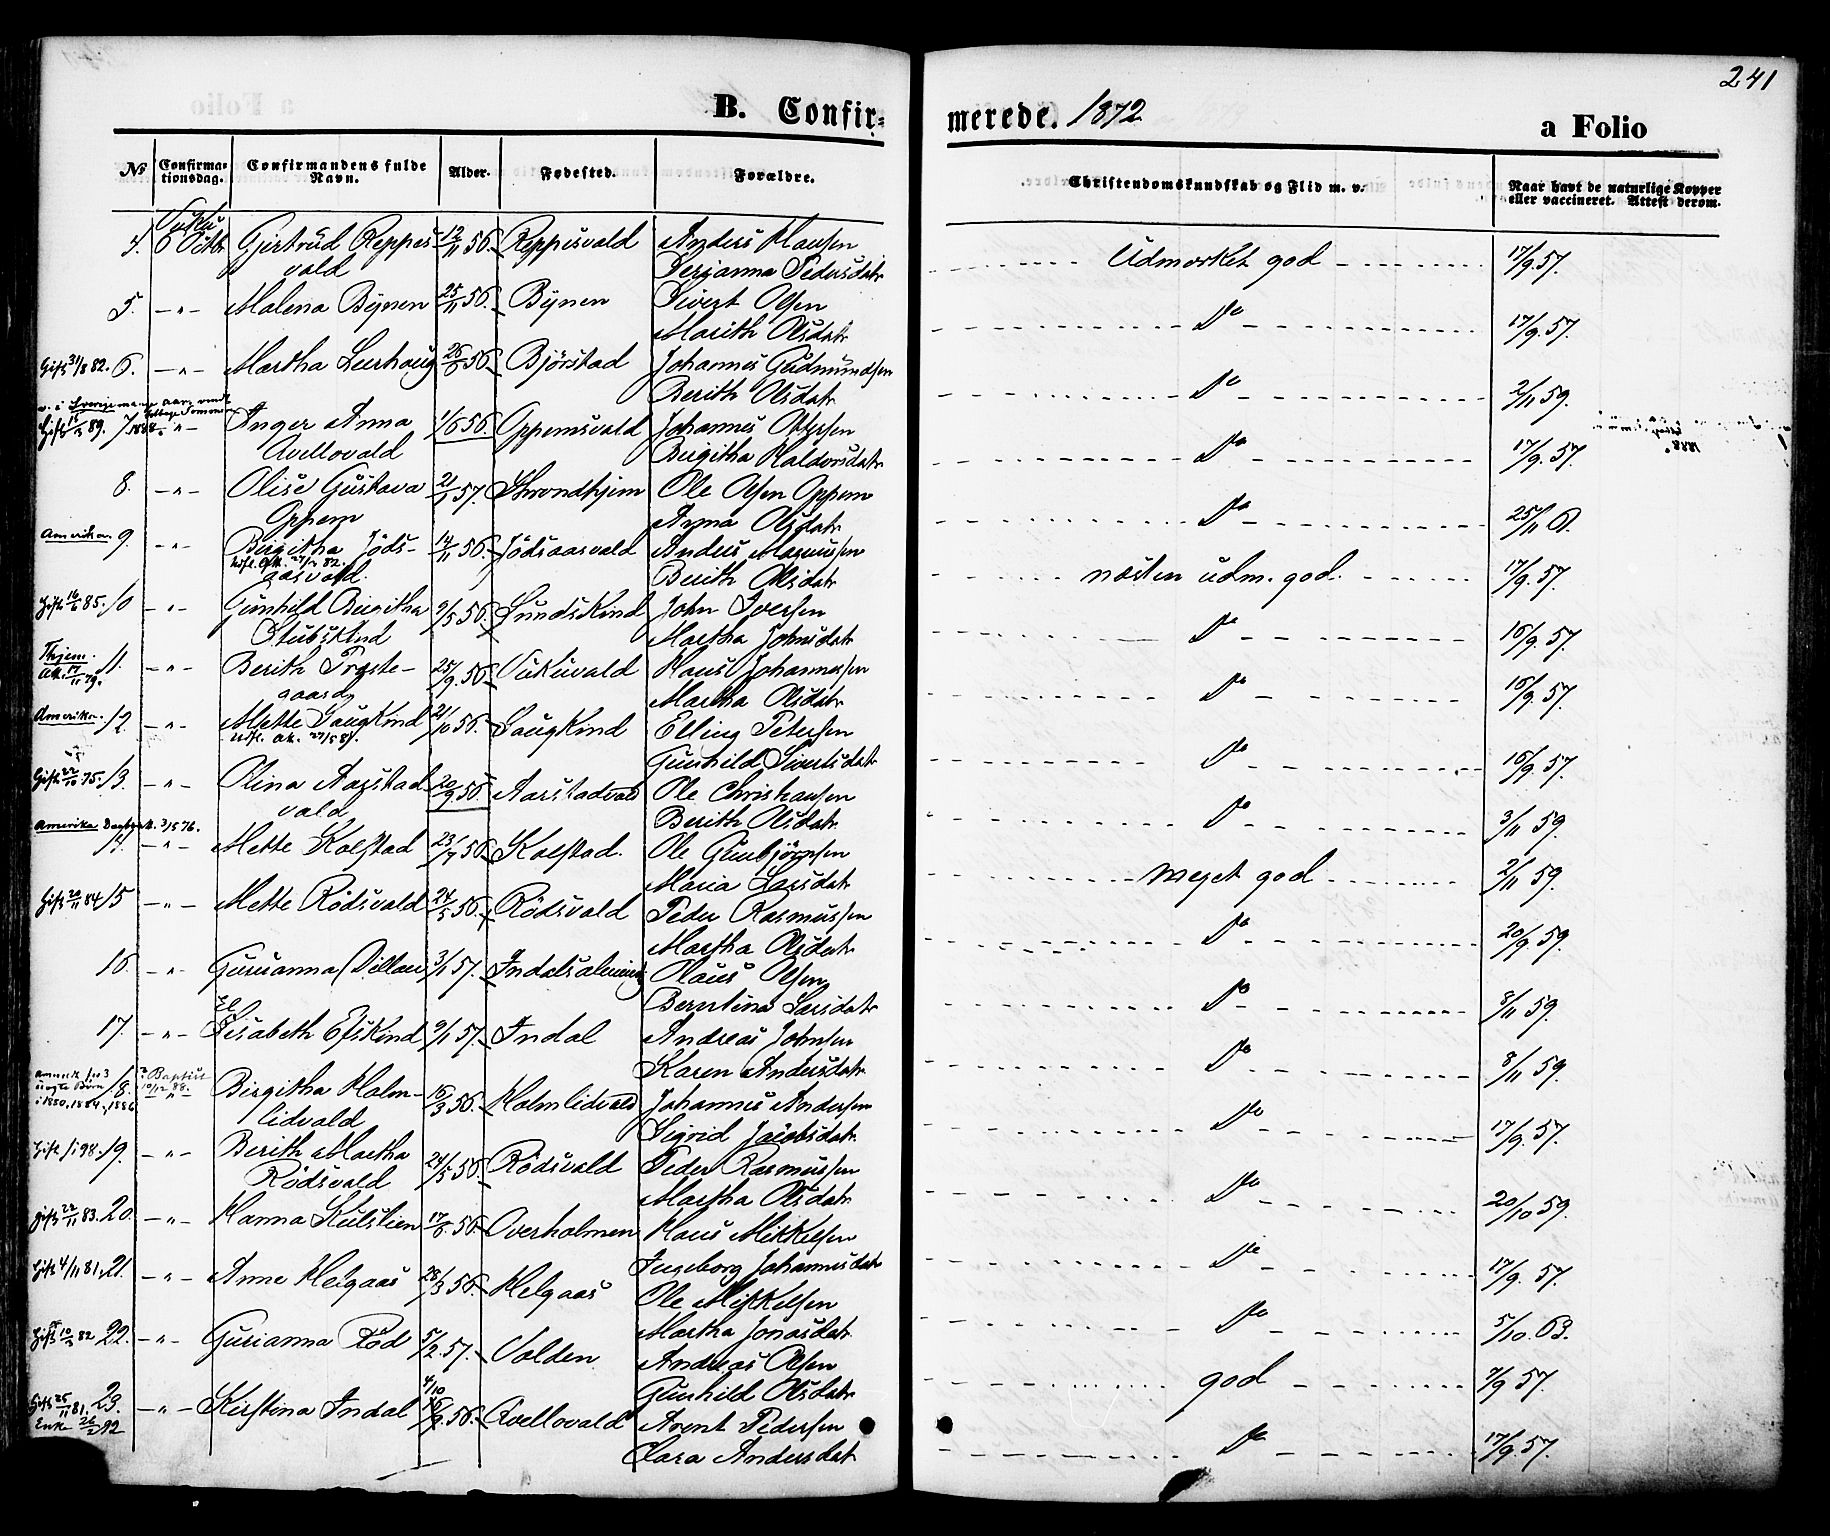 241
B. Confir-
merede. 1872
a Folio
No
Confirmationsdag.
Confirmandens fulde Navn.
Alder.
Fødested.
Forældre.
Christendomskundskab og Flid m. v.
Naar havt de naturlige Kopper eller vaccineret. Attest derom.
4. 6 Octbr Gjertrud Reppes- 12/11 56. Reppesvald Anders Hansen Udmærket god 17/9 57.
vald Serjanna Pedersdatr
5. - " - Malena Bÿnen 25/11 56. Bÿnen Sivert Olsen Do 17/9. 57.
Marith Olsdatr
Gift 31/8 82. 6. - " - Martha Leirhaug 26/6 56 Bjørstad Johannes Gudmundsen Do 2/11 59.
Berith Olsdatr
Gift 89. 7 - " - Inger Anna 1/6 56. Oppemsvald Johannes Do 17/9. 57.
Qvellovald Birgitha Haldorsdatr
8. - " - Olise Gustava 21/1 57. Throndhjem Ole Olsen Oppem Do 25/11 6.
Oppem Anna Olsdatr
Amerika. 9. - " - Birgitha Jøds- 14/11 56. Jødsaasvald Anders Rasmussen næsten udm. god. 17/9. 57.
aasvald. Berith Olsdatr
Gift 16/6 85. 10 - " - Gunhild Birgitha 9/5 56. Sundskind John Iversen Do 16/9 57.
Stubskind Martha Johnsdatr
Thjem. 11. - " - Berith Trøste- 25/9. 56 Vukuvald Hans Johannessen Do 16/9 57.
At. 17/11 79. gaard Martha Olsdatr
Amerika. 12 - " - Mette Saugkind 21/10 56. Saugkind Elling Petersen Do 16/9 57.
Gunhild Sivertsdatr
Gift 22/10 75. 13. - " - Olina Aarstad- 20/9 56. Aarstadvald Ole Christiansen Do 3/11 59.
vald Berith Olsdatr
Amerika
14. - " - Mette Kolstad 23/7 56 Kolstad. Ole Gunbjørnsen Meget god 2/11 59.
Maria Larsdatr
Gift 20/11 84 15 - " - Mette Rødsvald 24/5 56. Rødsvald Peder Rasmussen Do 20/9 59.
Martha Olsdatr
16. - " - Gurianna Dillan 3/1 57. Indalsalmining Olaus Olsen Do 8/11 59.
Berntina Larsdatr
17. - " - Elisabeth Efskind 9/1 57. Indal Andreas Johnsen Do 8/11 59.
Karen Andersdatr
18. - " - Birgitha Holm- 16/3 56. Holmlidvald Johannes Andersen Do 17/9. 57.
lidvald Sigrid Jacobsdatr
Gift /1 98. 19. - " - Berith Martha 24/5 56. Rødsvald Peder Rasmussen Do 20/10 59.
Rødsvald Martha Olsdatr
Gift 22/11 83. 20. - " - Hanna Kulslien 17/6. 56 Overholmen Hans Mikkelsen Do 17/9. 57.
Ingeborg Johannesdatr
Gift 4/11 81. 21. - " - Anne Helgaas 28/3 56. Helgaas Ole Mikkelsen Do 5/10. 63.
Martha Jonasdatr
Gift 10/5 82 22. - " - Gurianna Rød 5/2. 57. Volden Andreas Olsen god 7/9 57.
Gunhild Olsdatr
Gift 25/11 81. 23. - " - Kirstina Indal 56. Qvellovald Arent Pedersen Do 17/9. 57.
Enke 26/2 92 Clara Andersdat